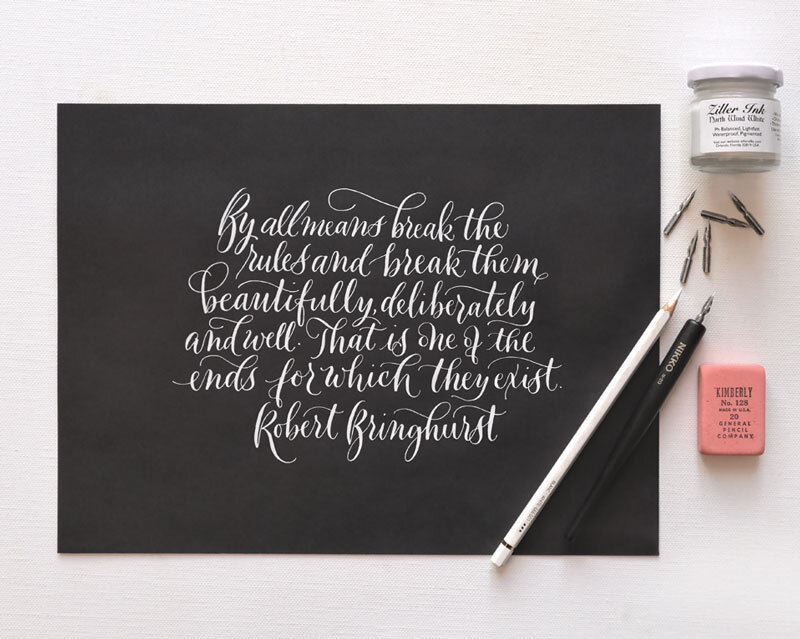 By all means break the
rules and break them
beautifully, deliberately
and well. That is one of the
ends for which they exist.
Robert Bringhurst
Ziller Ink
North Wind White
Ph Balanced, Lightfast
Waterproof, Pigmented
NIKKO
KIMBERLY
No. 128
MADE IN U.S.A.
20
GENERAL
PENCIL
COMPANY